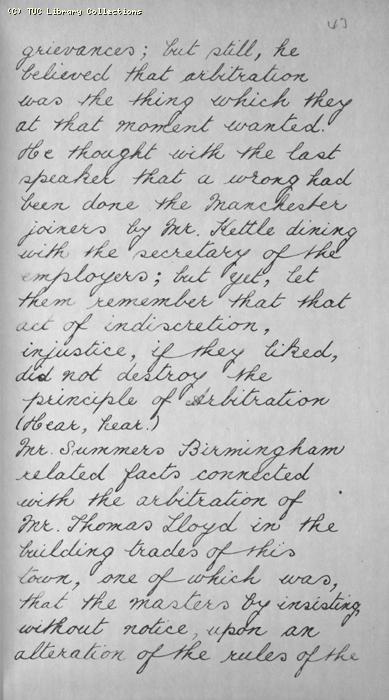 (C) TUC Library Collections
grievances; but still, he
believed that arbitration
was the thing which they
at that moment wanted.
He thought with the last
speaker that a wrong had
been done the Manchester
joiners by Mr. Kettle dining
with the secretary of the
employers; but yet, let
them remember that that
act of indiscretion,
injustice, if they liked,
did not destroy the
principle of Arbitration
(Hear, hear.)
Mr. Summers Birmingham
related facts connected
with the arbitration of
Mr. Thomas Lloyd in the
building trades of this
town, one of which was,
that the masters by insisting,
without notice, upon an
alteration of the rules of the